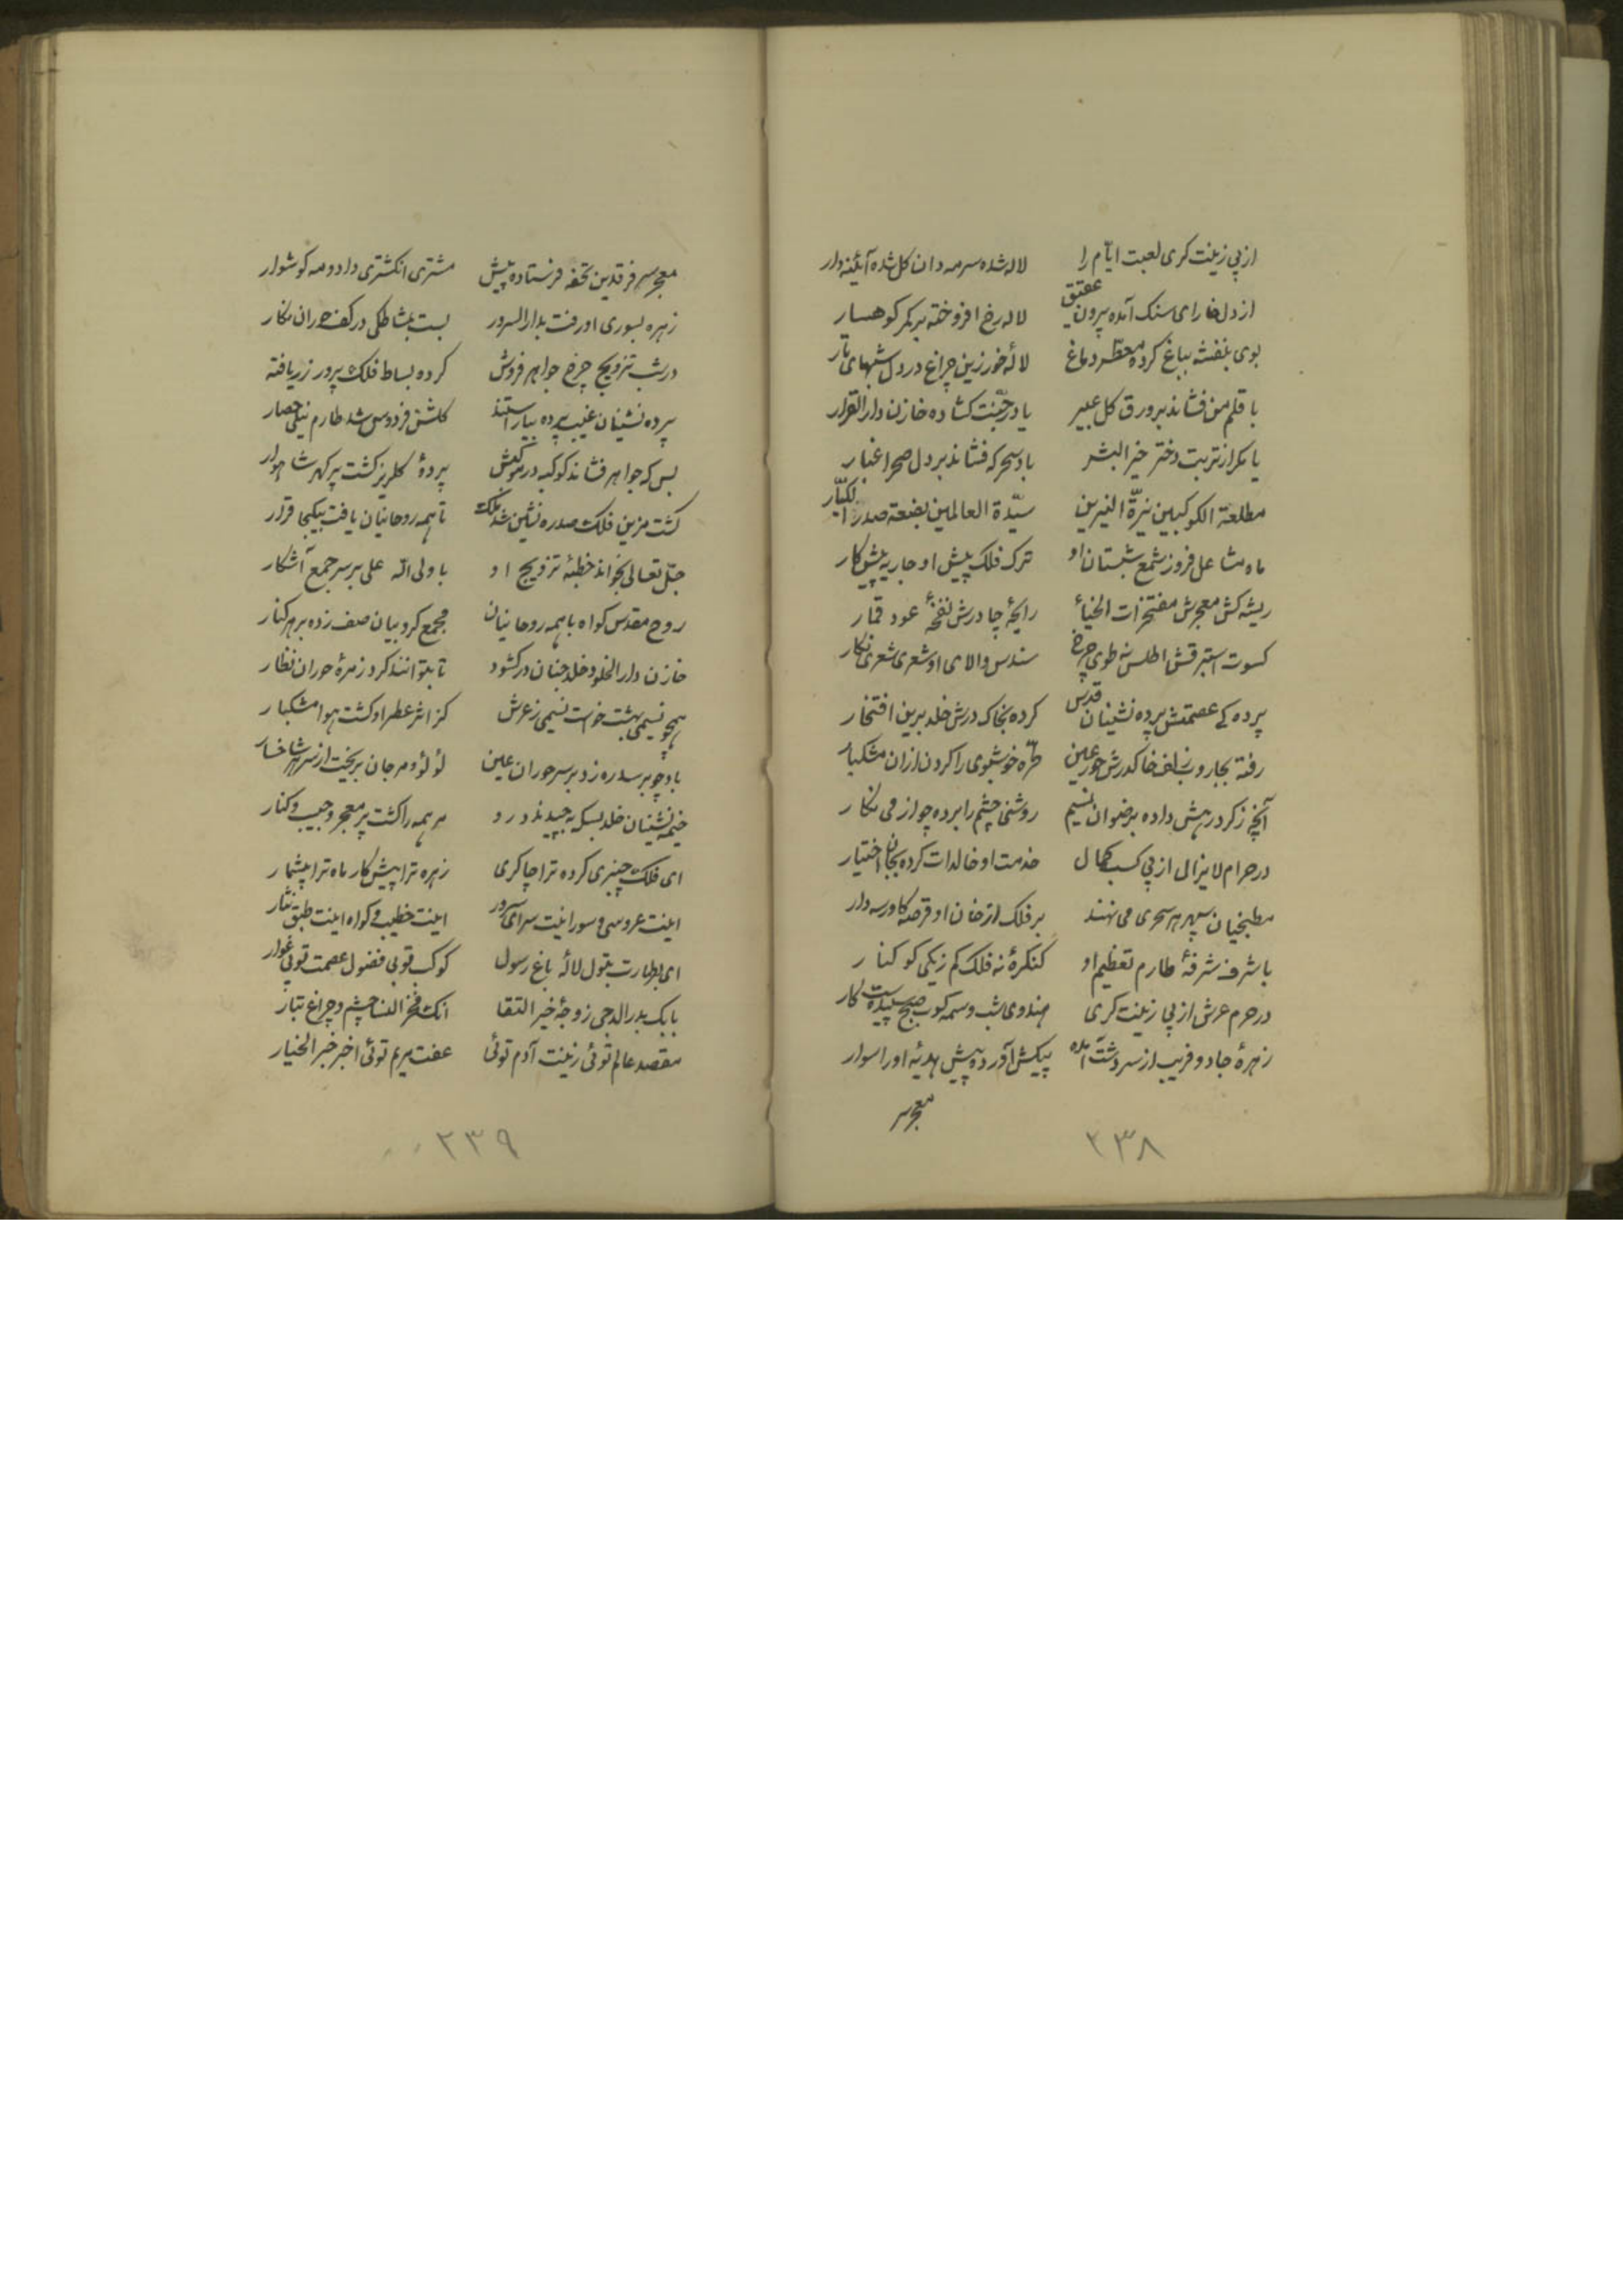 از پی زینت کری لعبت ایام را لاله شده سرمه دان کل شده آئینه دار
از دل خارای سنک آمده بیرون عقیق لاله رخ افروخته بر کمر کوهسار
بوی بنفشه بباغ کرده معطر دماغ لالهٔ خور زین چراغ در دل شبهای تار
با قلم من فشاند بر ورق کل عبیر یا در جنت کشاده خازن دار القرار
یا مکر از تربت دختر خیر البشر باد سحر که فشاند بر دل صحرا غبار
مطلعة الکوکبین نیرة النیرین سیدة العالمین بضعه صدر الکبار
ماه مشاعل فروز شمع شبستان او ترک فلک پیش او جاریه پیشکار
ریشه کش معجرش مفتخرات الخیا رایحهٔ چادرش نفخهٔ عود قمار
کسوت استبرقش اطلس نه طوی چرخ سندس والای او شعری شعری نکار
پرده کی عصمتش پرده نشینان قدس کرده بخاک درش خلد برین افتخار
رفته بجاروب زلف خاک درش حور عین طره خوشبوی را کردن ازان مشکبار
آنچه ز کرد رهش داده برضوان نسیم روشنی چشم را برده چو از می نکار
در حرام لایزال از پی کسب کمال خدمت او خالدات کرده بجان اختیار
مطبخیان سپهر هر سحری می نهند بر فلک از خان او قرصه کاورسه دار
با شرف شرفهٔ طارم تعظیم او کنکرهٔ نه فلک کم ز یکی کو کنار
در حرم عرش از پی زینت کری هندوی شب وسمه کوب صبح سپیده ست کار
زهرهٔ جادو فریب از سر دشت آمده پیکش آورده پیش هدیهٔ او را سوار
معجر سر
۲۳۸
معجر سر فرقدین تحفه فرستاده پیش مشتری انکشتری داد و مه کوشوار
زهره بسوری او رفت بدار السرور بست بمشاطکی در کف حوران نکار
در شب تزویج چرخ جواهر فروش کرده بساط فلک پرور زر یافته
پرده نشینان غیب پرده بیاراستند کلشن فردوس شد طارم نیلی حصار
بس که جواهر فشاند کوکبه در موکبش پردهٔ کلریز کشت پر کهر شاهوار
کشت مزین فلک صدره نشین شد ملک تا همه روحانیان یافت بیکجا قرار
جل تعالی بخواند خطبهٔ تزویج او با ولی الله علی بر سر جمع آشکار
روح مقدس کواه با همه روحانیان مجمع کروبیان صف زده بر هر کنار
خازن دار الخلود خلد جنان در کشود تا بتوانند کرد زمرهٔ حوران نظار
همچو نسیمی بهشت خواست نسیمی ز عرش کز اثر عطر او کشت هوا مشکبار
باد چو بر سدره زد بر سر حوران عین لؤلؤ و مرجان بریخت از سر هر شاخسار
خیمه نشینان خلد بسکه بچیدند درد مر همه را کشت پر معجر و جیب و کنار
ای فلک چنبری کرده ترا چاکری زهره ترا پیش کار ماه ترا پیشمار
اینت عروسی و سور اینت سرای سرور اینت خطیب و کواه اینت طبق نثار
ای بطهارت بتول لالهٔ باغ رسول کوکب توبی فضول عصمت توبی غوار
بابک بدر الدجی زوجهٔ خیر التقا انک فخر النسا چشم و چراغ تبار
مقصد عالم توئی زینت آدم توئی عفت مریم توئی اخیر خیر الخیار
۲۳۹